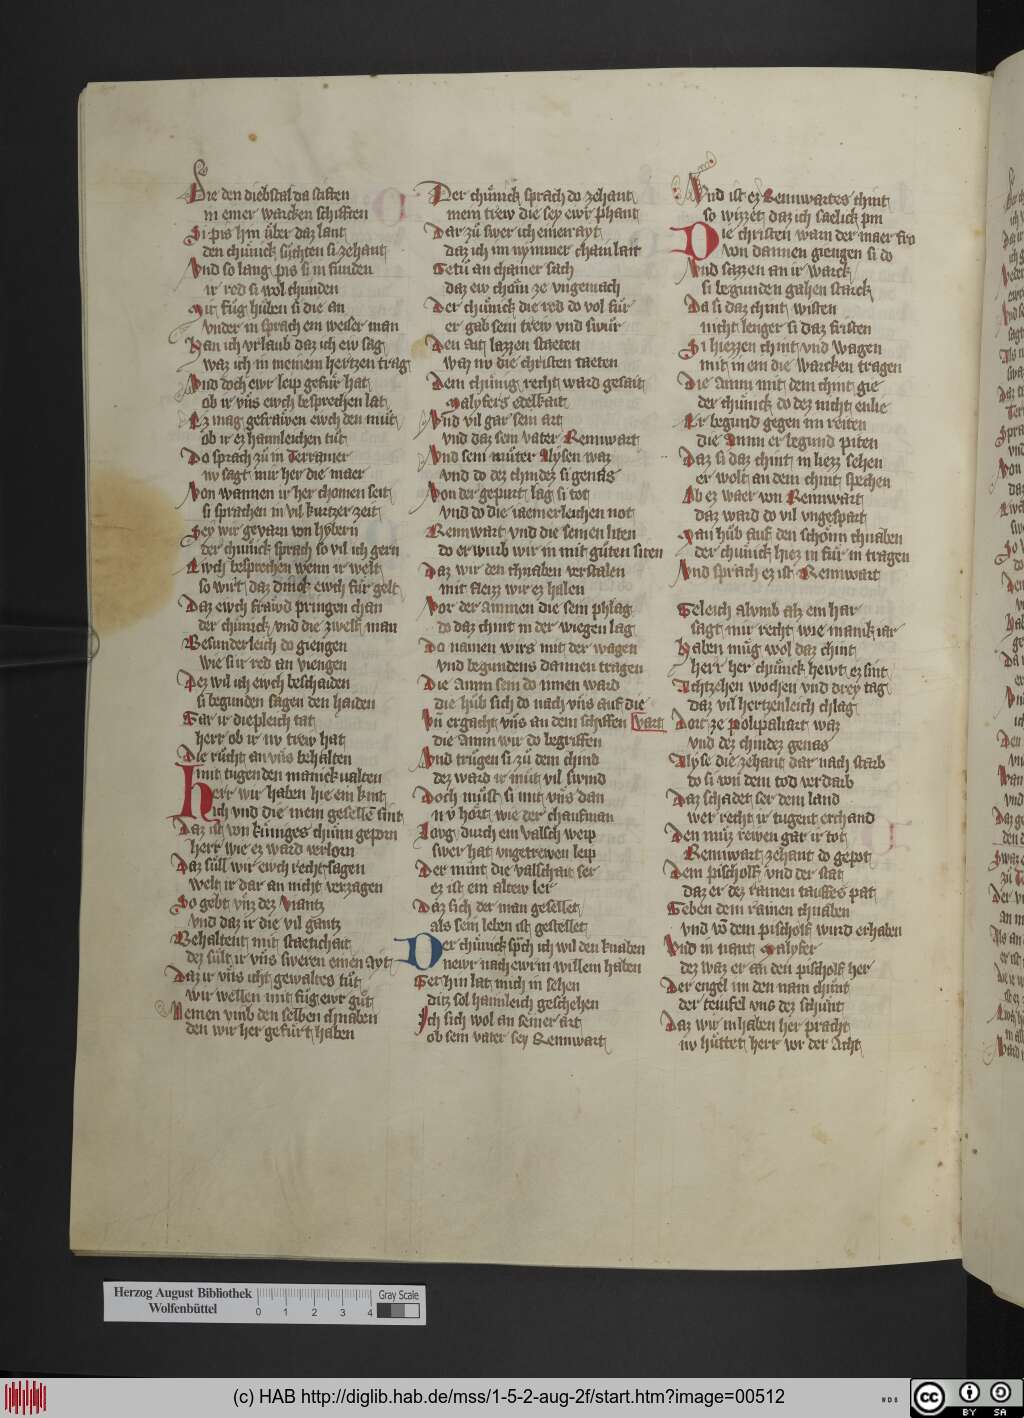 Die den diebstal da stiften
in einer warcken schifften
Si pis hin über daz lant
den chünick suchten si zehant
Vnd so lang pis si in funden
ir red si wol chunden
Mit füg hüben si die an
vnder in sprach ein weiser man
Han ich vrlaub daz ich ew sag
waz ich in meinem hertzen trag
Vnd doch ewr leip gefür hat
ob ir vns ewch besprechen lat
Ez mag gefraiwen ewch den müt
ob ir ez haimleichen tüt
Do sprach zü in Terramer
nv sagt mir her die maer
Von wannen ir her chomen seit
si sprachen in vil kurtzer zeit
Sey wir gevarn von hybern
der chünick sprach so vil ich gern
Ewch besprechen wenn ir welt
so wirt daz dinck ewch für gelt
Daz ewch frawd pringen chan
der chünick vnd die zwelf man
Besunderleich do giengen
wie si ir red an viengen
Dez wil ich ewch beschaiden
si begunden sagen den haiden
Gar ir diepleich tat
herr ob ir nv trew hat
Die rücht an vns behalten
mit tugenden manickualten
Herr wir haben hie ein kint
ich vnd die mein gesellē sint
Daz ist von küniges chünn geporn
herr wie ez ward verlorn
Daz süll wir ewch recht sagen
welt ir dar an nicht verzagen
So gebt vns dez viantz
vnd daz ir die vil gantz
Behaltent mit staetichait
dez sült ir vns sweren einen ayt
Daz ir vns icht gewaltes tüt
wir wellen mit füg ewr güt
Nemen vmb den selben chnaben
den wir her gefürt haben
Der chünick sprach do zehant
mein trew die sey ewr phant
Dar zü swer ich einen ayt
daz ich im nymmer chain lait
Getü an chainer sach
daz ew chom ze vngemach
Der chünick die red do vol für
er gab sein trew vnd swür
Den ait lazzen staeten
waz nv die christen taeten
Dem chünig recht ward gesait
Malyfers edelkait
Vnd vil gar sein art
vnd daz sein vater Rennwart
Vnd sein müter Alysen waz
vnd do dez chindez si genas
Von der gepurt lag si tot
vnd do die iaemerleichen not
Rennwart vnd die seinen liten
do erwurb wir in mit güten siten
Daz wir den chnaben verstalen
mit fleizz wir ez halen
Vor der ammen die sein phlag
do daz chint in der wiegen lag
Do namen wirs mit der wagen
vnd begundens dannen tragen
Die Amm sein do innen ward
die hüb sich do nach vns auf die
Vn ergacht vns an dem schiffen vart
die amm wir do begriffen
Vnd trügen si zü dem chind
dez ward ir müt vil swind
Doch müst si mit vns dan
nv hört wie der chaufman
Laug durch ein valsch weip
swer hat vngetrewen leip
Der mint die valschait ser
ez ist ein altew ler
Daz sich der man gesellet
als sein leben ist gestellet
Der chünick sp̄ch ich wil den knaben
newr nach ewrm willem haben
Get hin lat mich in sehen
ditz sol haimleich geschehen
Ich sich wol an seiner art
ob sein vater sey Rennwart
Vnd ist ez Rennwartes chint
so wizzet daz ich saelick pin
Die christen warn der maer fro
von dannen giengen si do
Vnd sazzen an ir warck
si begunden gahen starck
Da si daz chint wisten
nicht lenger si daz fristen
Si hiezzen chint vnd wagen
mit in ein die warcken tragen
Die Amm mit dem chint gie
der chünick do dez nicht enlie
Er begund gegen im reiten
die Amm er begund piten
Daz si daz chint in liezz sehen
er wolt an dem chint spechen
Ab ez waer von Rennwart
daz ward do vil vngespart
Man hüb auf den schönn chnaben
der chünick hiez in für in tragen
Vnd sprach ez ist Rennwart
Geleich alvmb als ein har
sagt mir recht wie manik iar
Haben müg wol daz chint
herr her chünick hewt ez sint
Achtzehen wochen vnd drey tag
daz vil hertzenleich chlag
Dort ze polupaliart waz
vnd dez chindez genas
Alyse die zehant dar nach starb
do si von dem tod verdarb
Daz schadet ser dem land
wer recht ir tugent erchand
Den müz rewen gar ir tot
Rennwart zehant do gepot
Dem pischolf vnd der stat
daz er dez rainen tauffes pat
Geben dem rainen chnaben
vnd vō dem pischolf wird erhaben
Vnd in nant Malyfer
dez waz er an den pischolf her
Der engel im den nam chunt
der tewfel vns dez schunt
Daz wir in haben her pracht
nv hüttet herr wr der Acht
Herzog August Bibliothek
Wolfenbüttel
0 1 2 3 4
Gray Scale
(c) HAB http://diglib.hab.de/mss/1-5-2-aug-2f/start.htm?image=00512
cc BY SA